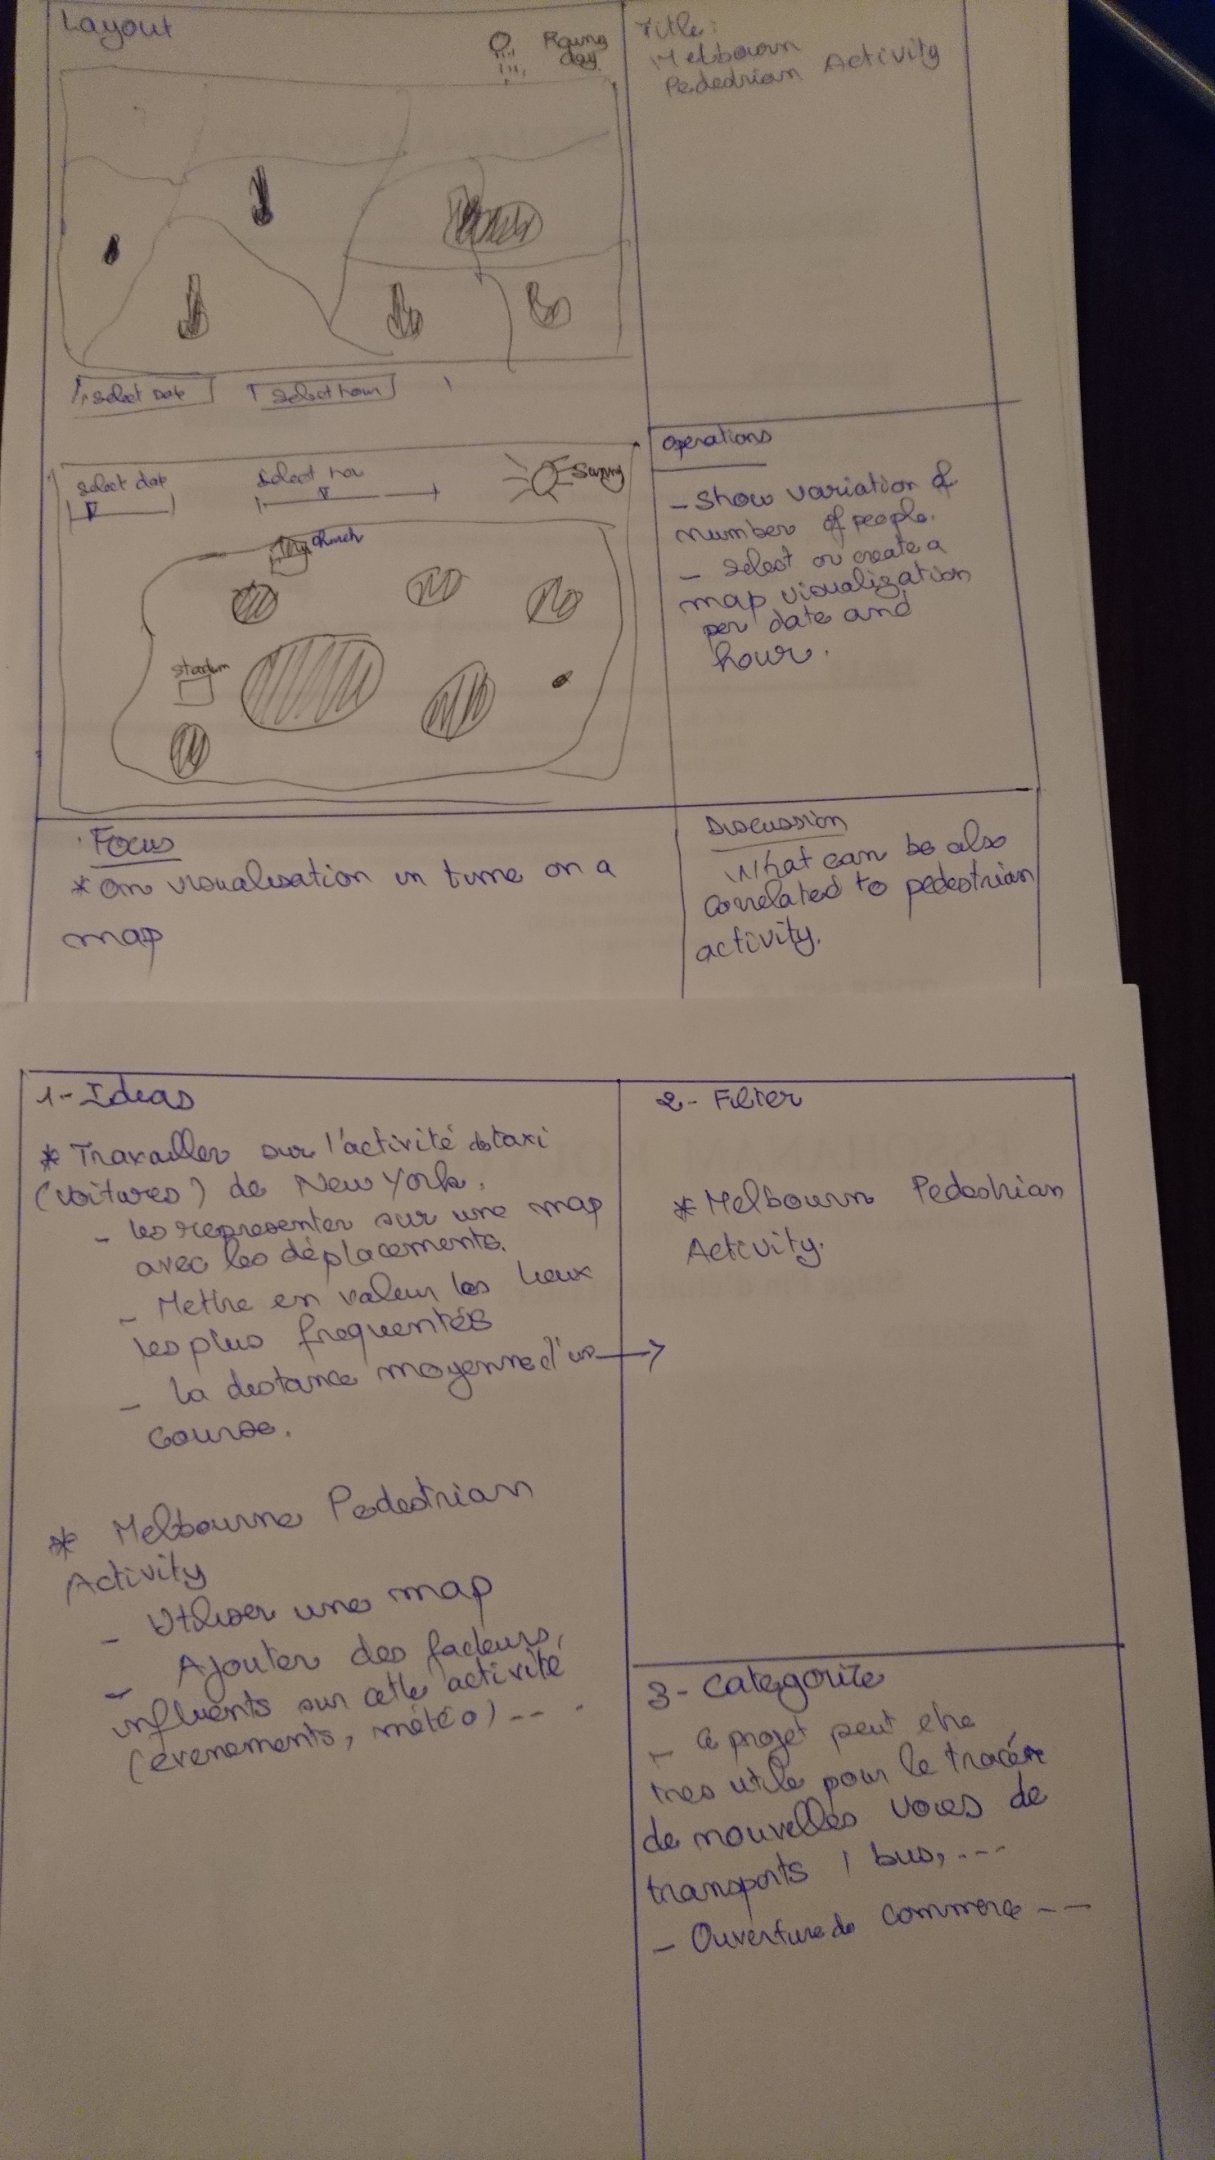 Layout
Rainy
day
select Date
select hour
select dat
select hou
Sunny
church
stadium
Title:
Melbourn
Pededrian Activity
Operations
- Show variation of
number of people.
- select or create a
map visualization
per date and
hour.
Focus
* On visualisation in time on a
map
Discussion
What can be also
correlated to pedestrian
activity.
1- Ideas
* Travailler sur l'activité de taxi
(voitures) de New York.
- les representer sur une map
avec les déplacements.
- Mettre en valeur les lieux
les plus frequentés
- la distance moyenne d'un
course.
* Melbourne Pedestrian
Activity
- Utiliser une map
- Ajouter des facteurs
influents sur cette activité
(évenements, météo) -- .
2- Filter
* Melbourn Pedestrian
Activity.
3- Categorize
- Ce projet peut etre
tres utile pour le tracér
de nouvelles voies de
transports, bus, ---
- Ouverture de commerce --